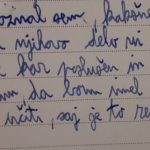 poznal sem, kakšno
njihovo delo ni
kar poslušen in
da bom imel
učiti, saj je to re